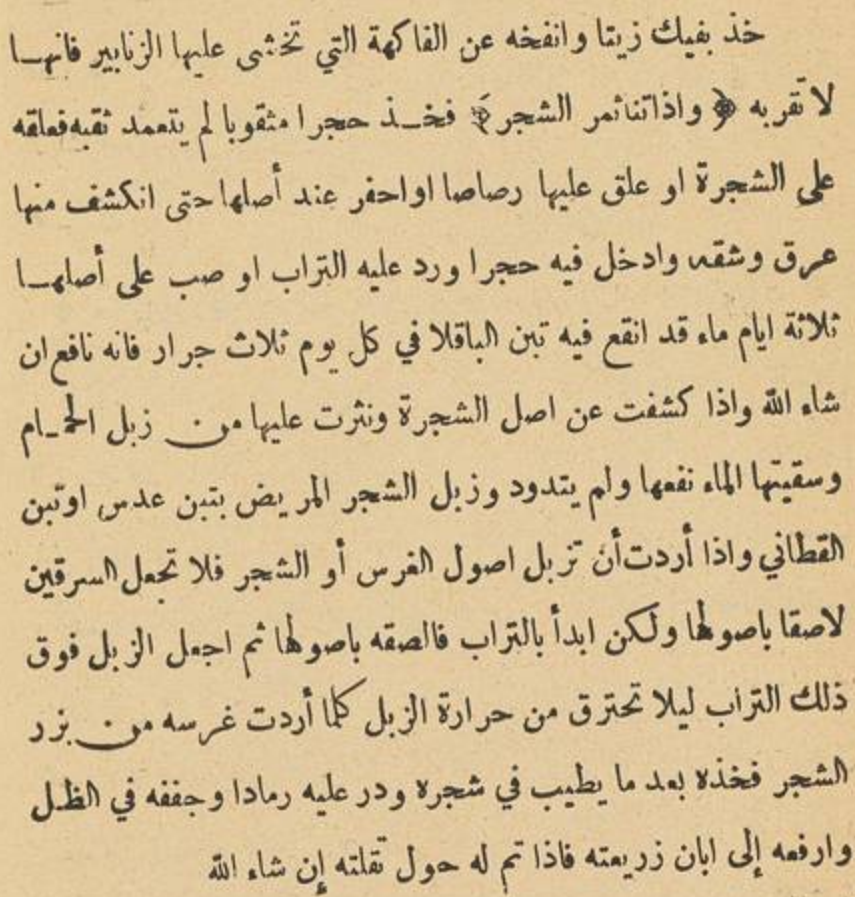 خذ بفيك زيتا وانفخه عن الفاكهة التي تخشى عليها الزنابير فانهـا
لا تقربه ﴿ واذا تناثمر الشجر ﴾ فخـذ حجرا مثقوبا لم يتعمد ثقبه فعلقه
على الشجرة او علق عليها رصاصا او احفر عند أصلها حتى انكشف منها
عرق وشقه وادخل فيه حجرا ورد عليه التراب او صب على أصلهـا
ثلاثة ايام ماء قد انقع فيه تبن الباقلا في كل يوم ثلاث جرار فانه نافع ان
شاء الله واذا كشفت عن اصل الشجرة ونثرت عليها من زبل الحمـام
وسقيتها الماء نفعها ولم يتدود وزبل الشجر المريض بتبن عدس او تبن
القطاني واذا أردت أن تزبل اصول الغرس أو الشجر فلا تجعل السرقين
لاصقا باصولها ولكن ابدأ بالتراب فالصقه باصولها ثم اجعل الزبل فوق
ذلك التراب ليلا تحترق من حرارة الزبل كلما أردت غرسه من بزر
الشجر فخذه بعد ما يطيب في شجره ودر عليه رمادا وجففه في الظـل
وارفعه إلى ابان زريعته فاذا تم له حول نقلته إن شاء الله